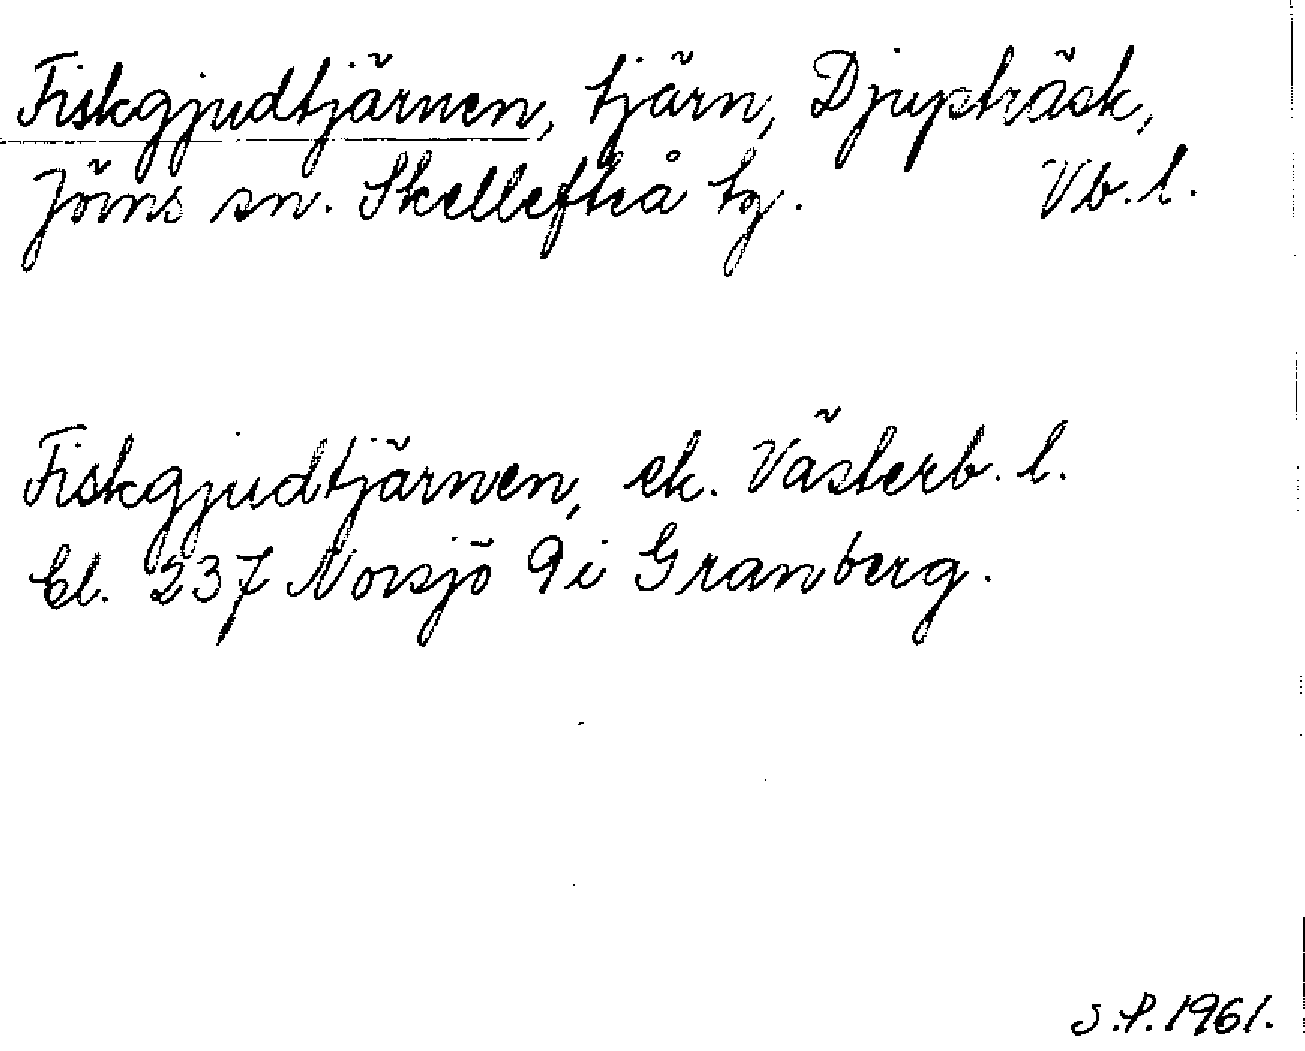 Fiskgjudtjärnen, tjärn, Djupträsk,
Jörns sn. Skellefteå tg. Vb. l.
Fiskgjudtjärnen, ek. Västerb. l.
bl. 237 Norsjö 9i Granberg.
S.P. 1961.